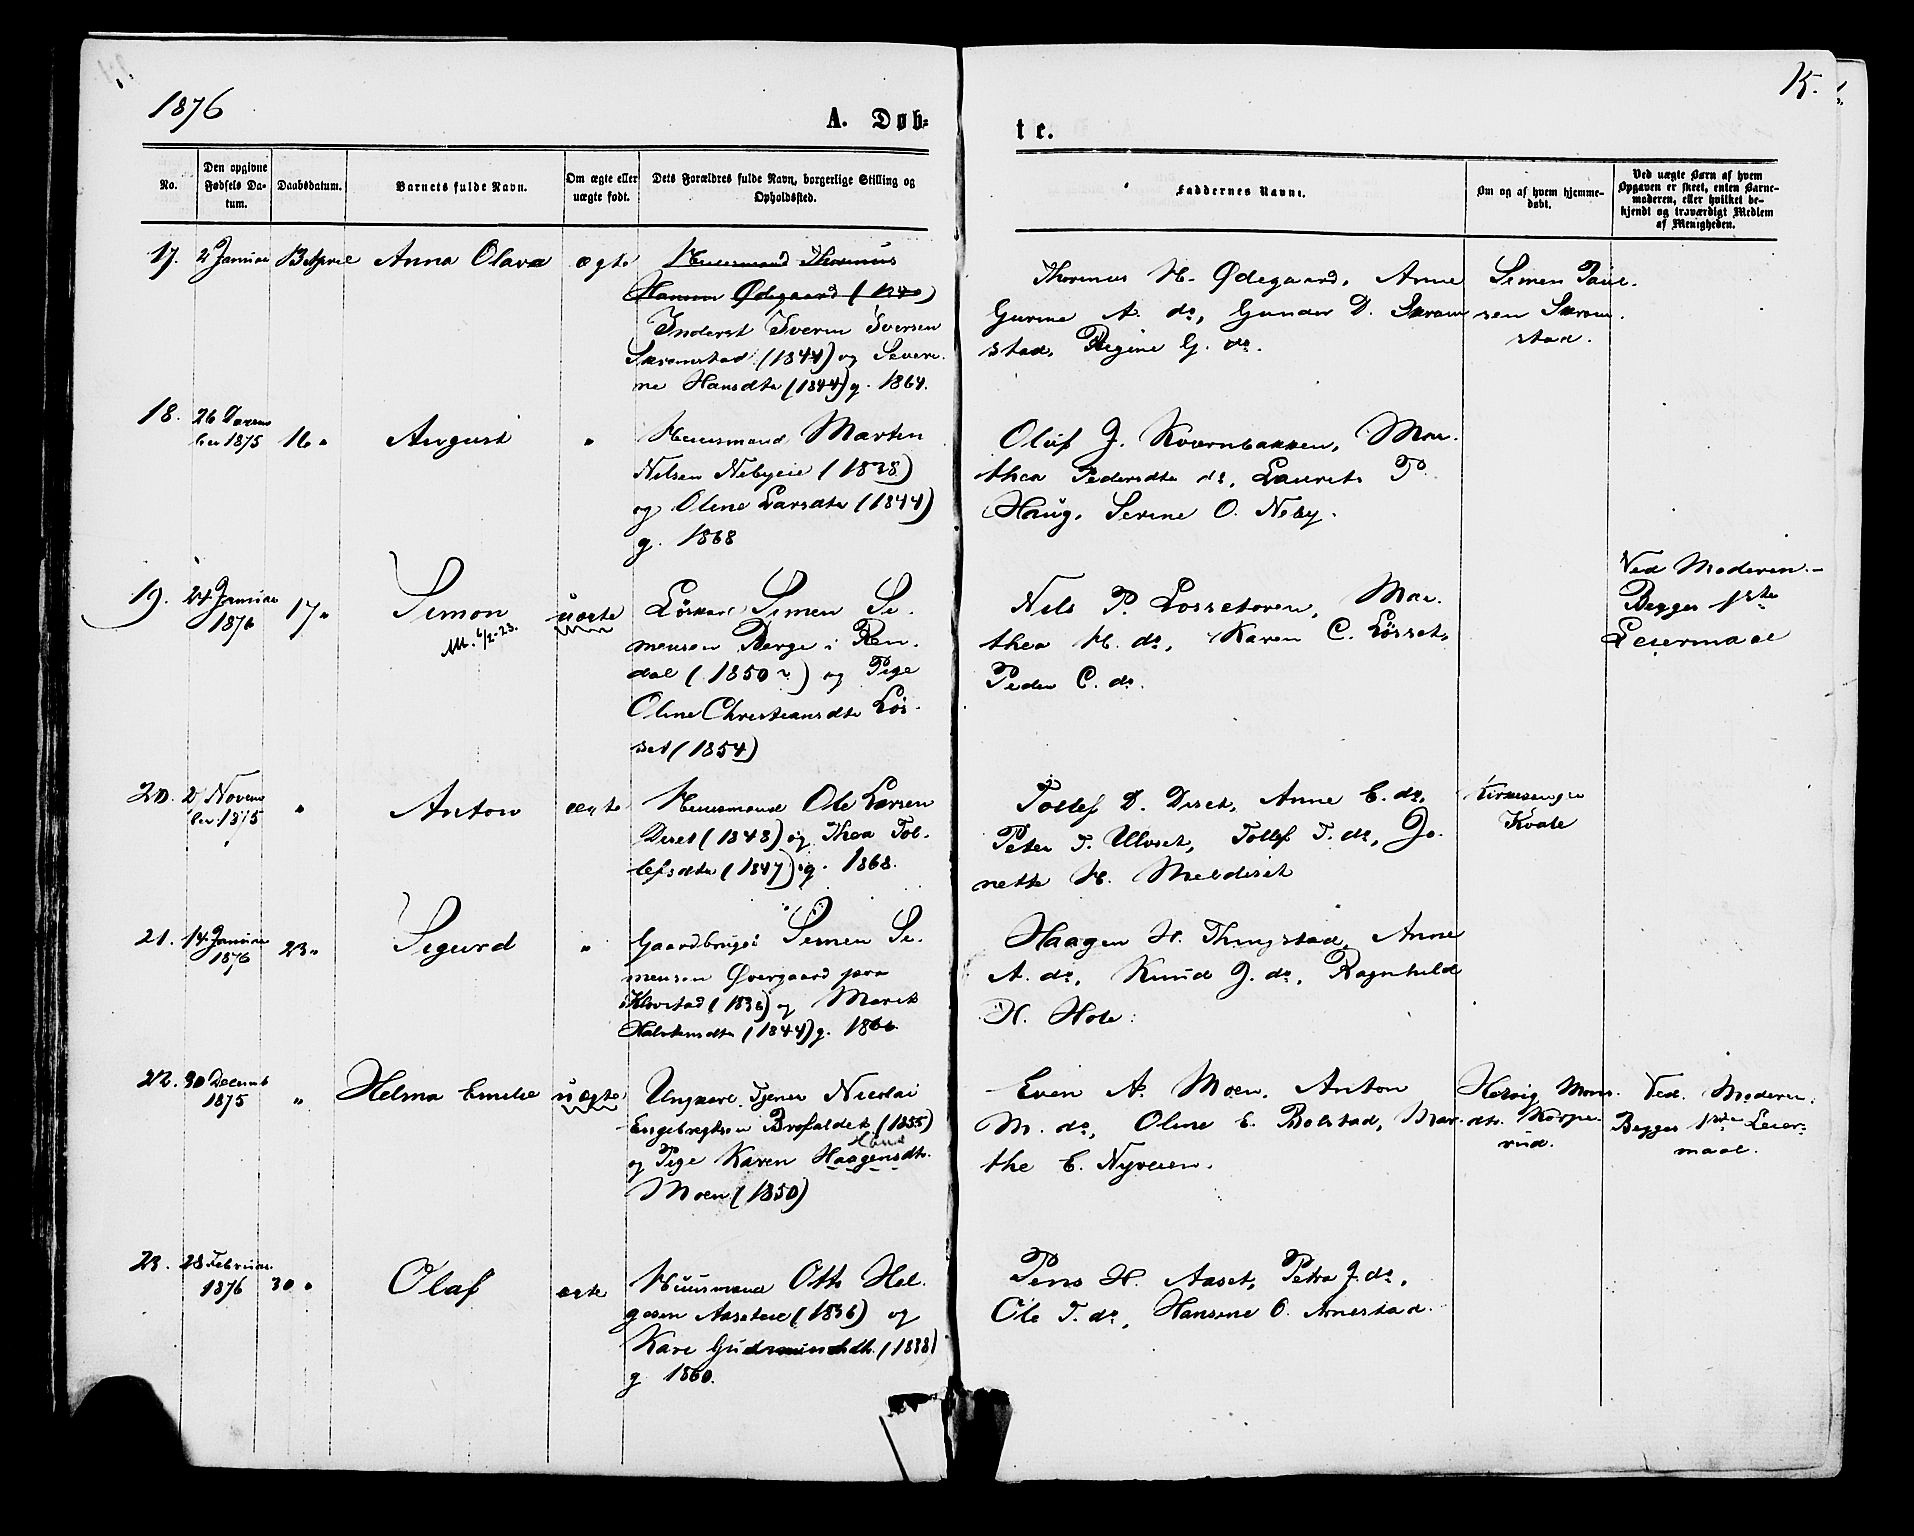 1876
A. Døb=
te.
15.
No.
Den opgivne Fødsels Da-tum.
Daabsdatum.
Barnets fulde Navn.
Om ægte eller uægte født.
Dets Forældres fulde Navn, borgerlige Stilling og Opholdssted.
Faddernes Navne.
Om og af hvem hjemme-døbt.
Ved uægte Børn af hvem Opgaven er skeet, enten Barne-moderen, eller hvilket be-kjendt og troværdigt Medlem af Menigheden.
17. 2 Januar
Anna Olava
ægte
Huusmand Thorinus
Hansen Ødegaard (1840)
Inderst Iveren Iversen
(1844) og Severi-
ne Hansdtr (1844) g. 1864.
Thorinus H. Ødegaard, Anne
Gurine A. do, Gunder D.
stad, Regine G. do.
Simen Paul-
sen
stad.
18.
26 Novem
ber 1875
16 "
August
"
Huusmand Morten
Nilsen Nebyeie (1838)
og Oline Larsdtr (1844)
g. 1868
Oluf J. Kvernbakken, Mar-
thea Pedersdtr do, Laurits P.
Haug, Serine O. Neby.
19.
24 Januar
1876
17 "
Simon
uægte
Simen Si-
mensen Berge i Ren-
dal (1850 ?) og Pige
Oline Christiansdtr Løs-
set (1854)
Nils P. Lossetoren, Mar-
thea H. do, Karen C. Løsset,
Peder C. do.
Ved Moderen.-
Begges 1ste
Leiermaal
20.
2 Novem
ber 1875
"
Anton
ægte
Huusmand Ole Larsen
Diset (1843) og Thea Tol-
lefsdtr (1847) g. 1868.
Tollef D. Diset, Anne E. do,
Peter T. Ulvset, Tollef T. do, Jo-
nette H. Meldiset
Kirkesanger
Kvale
21.
14 Januar
1876
23 "
Sigurd
"
Gaardbruger Simen Si-
mensen Øvergaard paa
(1838) og Marit
Halstensdtr (1844) g. 1866
Haagen H. Thingstad, Anne
A. do, Knud J. do, Ragnhild
H. Hole.
22.
30 Decemb
1875
"
Helma Emelie
uægte
Ungkarl. Tjener Nicolai
Engebregtsen Brofaldet (1855)
og Pige Karen Haagensdtr.
Hans
Moen (1850)
Even A. Moen, Anton
M. do, Oline E. Bolstad, Mar-
the E. Nyveien.
Hedvig Mons-
dtr.
rud.
Ved. Moderen.
Begges 1ste Leier-
maal.
23.
28 Februar.
1876
30 "
Olaf
ægte
Huusmand Otto Hel-
gesen Aaseteie (1836) og
Kari Gudmundsdtr. (1838)
g 1860.
Pens H. Aaset, Petra J. do,
Ole T. do, Hansine O. Arnestad.